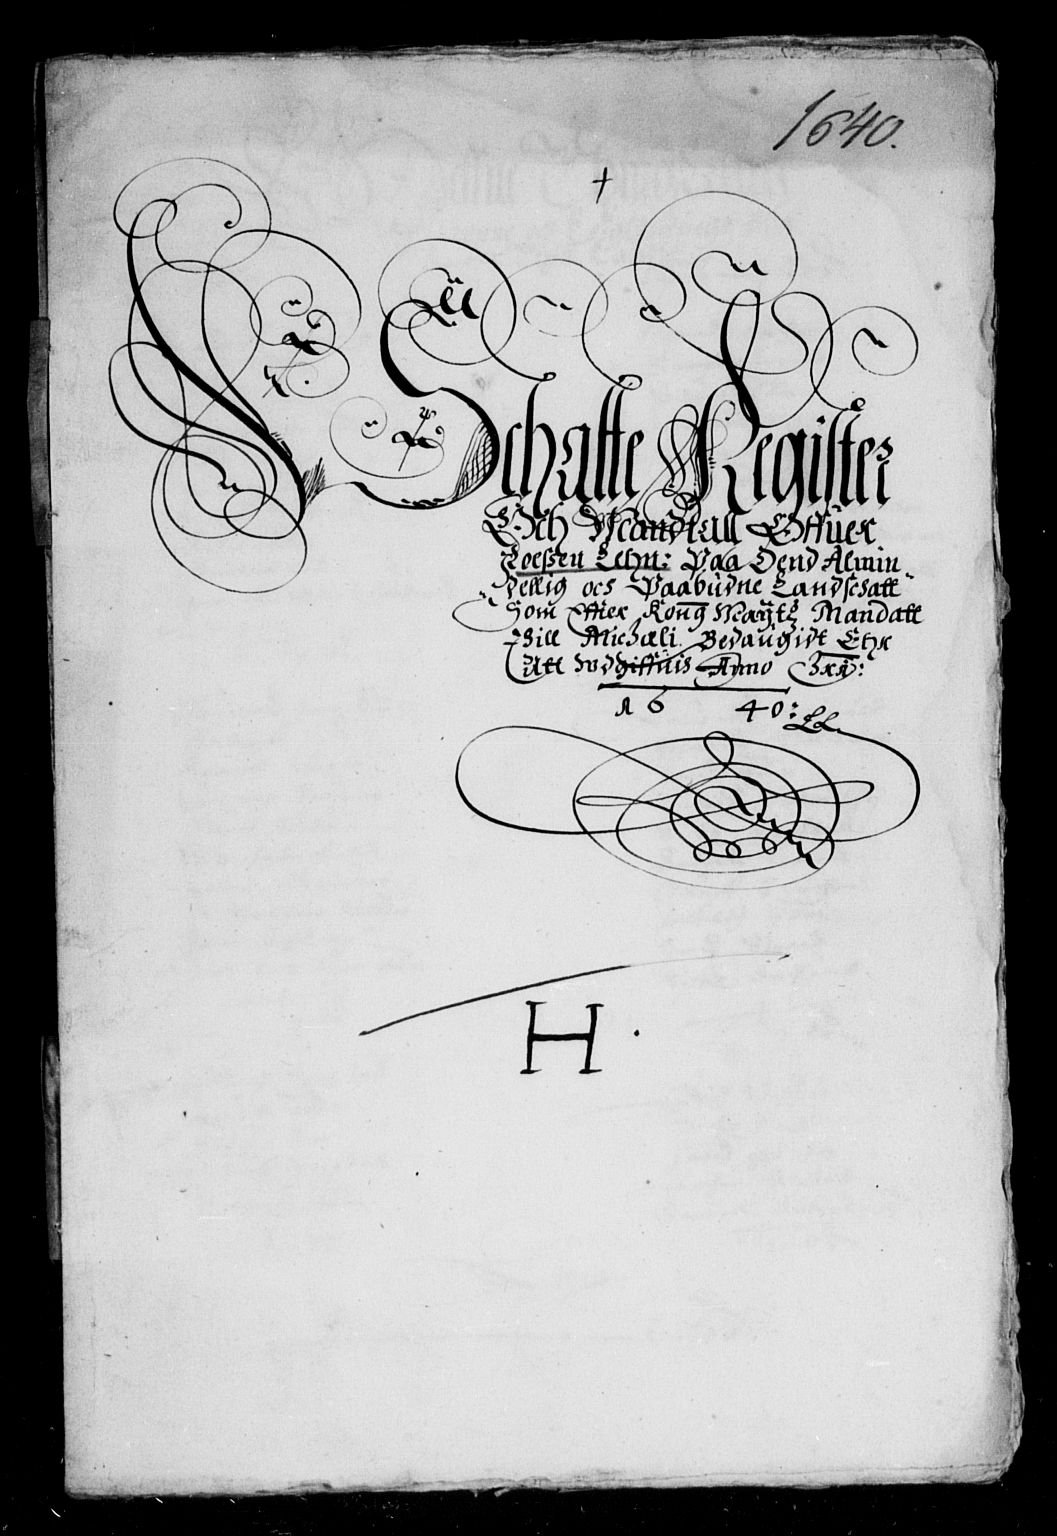 1640.
Schatte Register
Och Mandtall Offuer
Roeßen Lehn: Paa Dend Almin
dellig ocs Paabudne Landschatt
Som Effter Kong Maÿtz Mandatt
Till Michæli Bedaugidt Ehr
Att Wdgiffuis Anno
16 40:
H.